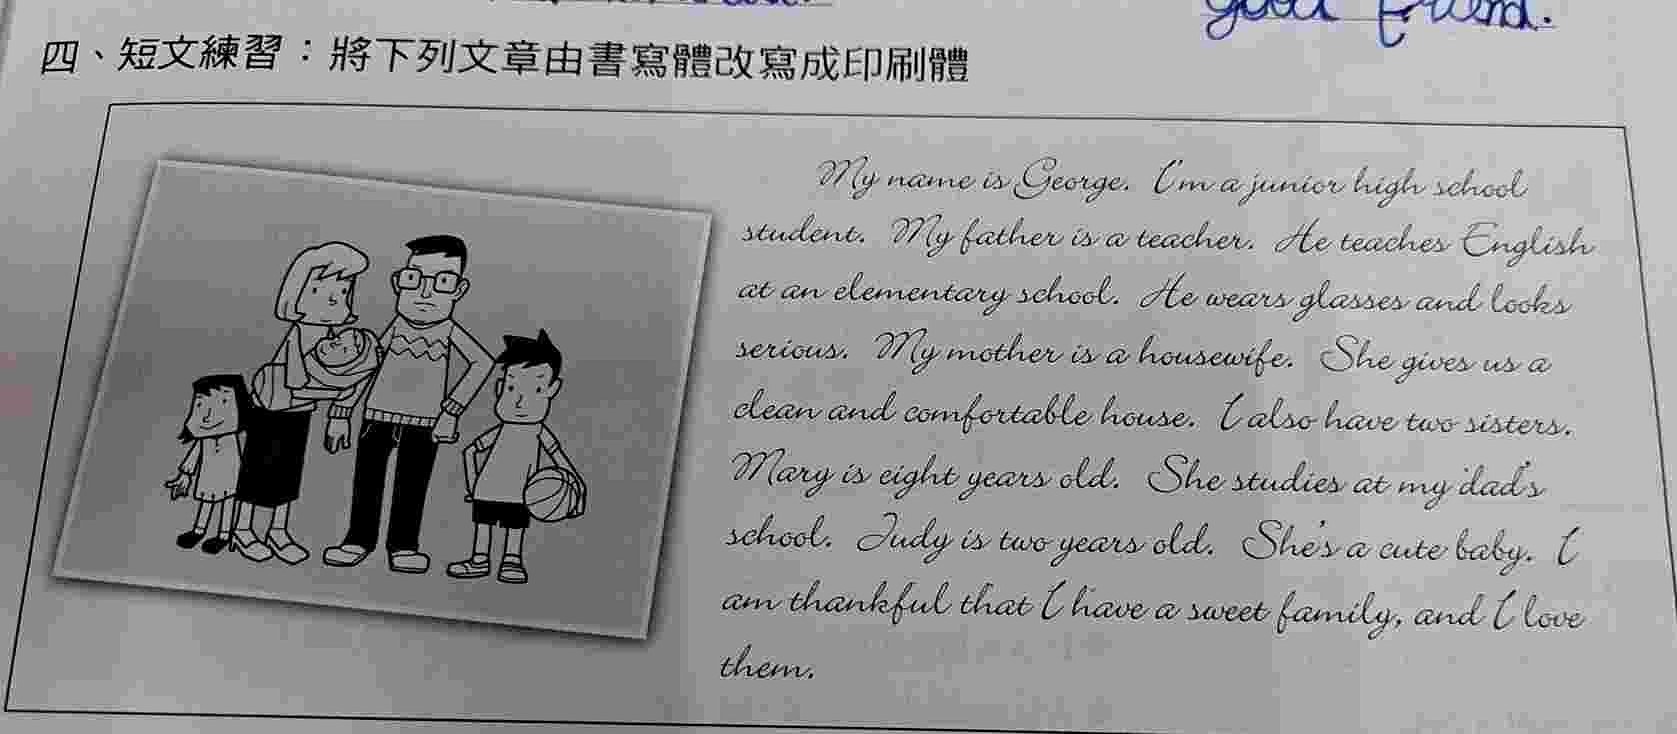 good friend.
四、短文練習：將下列文章由書寫體改寫成印刷體
My name is George. I'm a junior high school
student. My father is a teacher. He teaches English
at an elementary school. He wears glasses and looks
serious. My mother is a housewife. She gives us a
clean and comfortable house. I also have two sisters.
Mary is eight years old. She studies at my dad's
school. Judy is two years old. She's a cute baby. I
am thankful that I have a sweet family, and I love
them.